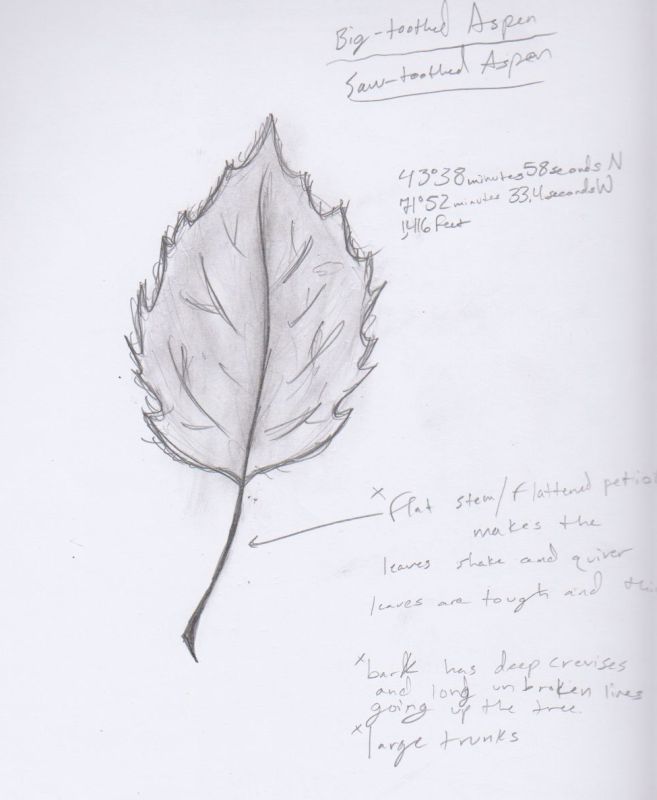 Big-toothed Aspen
Saw-toothed Aspen
43°38minutes58secondsN
71°52minutes 33.4secondsW
1,416 Feet
x Flat stem/flattened
makes the
leaves shake and quiver
leaves are tough and
x bark has deep crevises
and long unbroken lines
going up the tree.
x large trunks